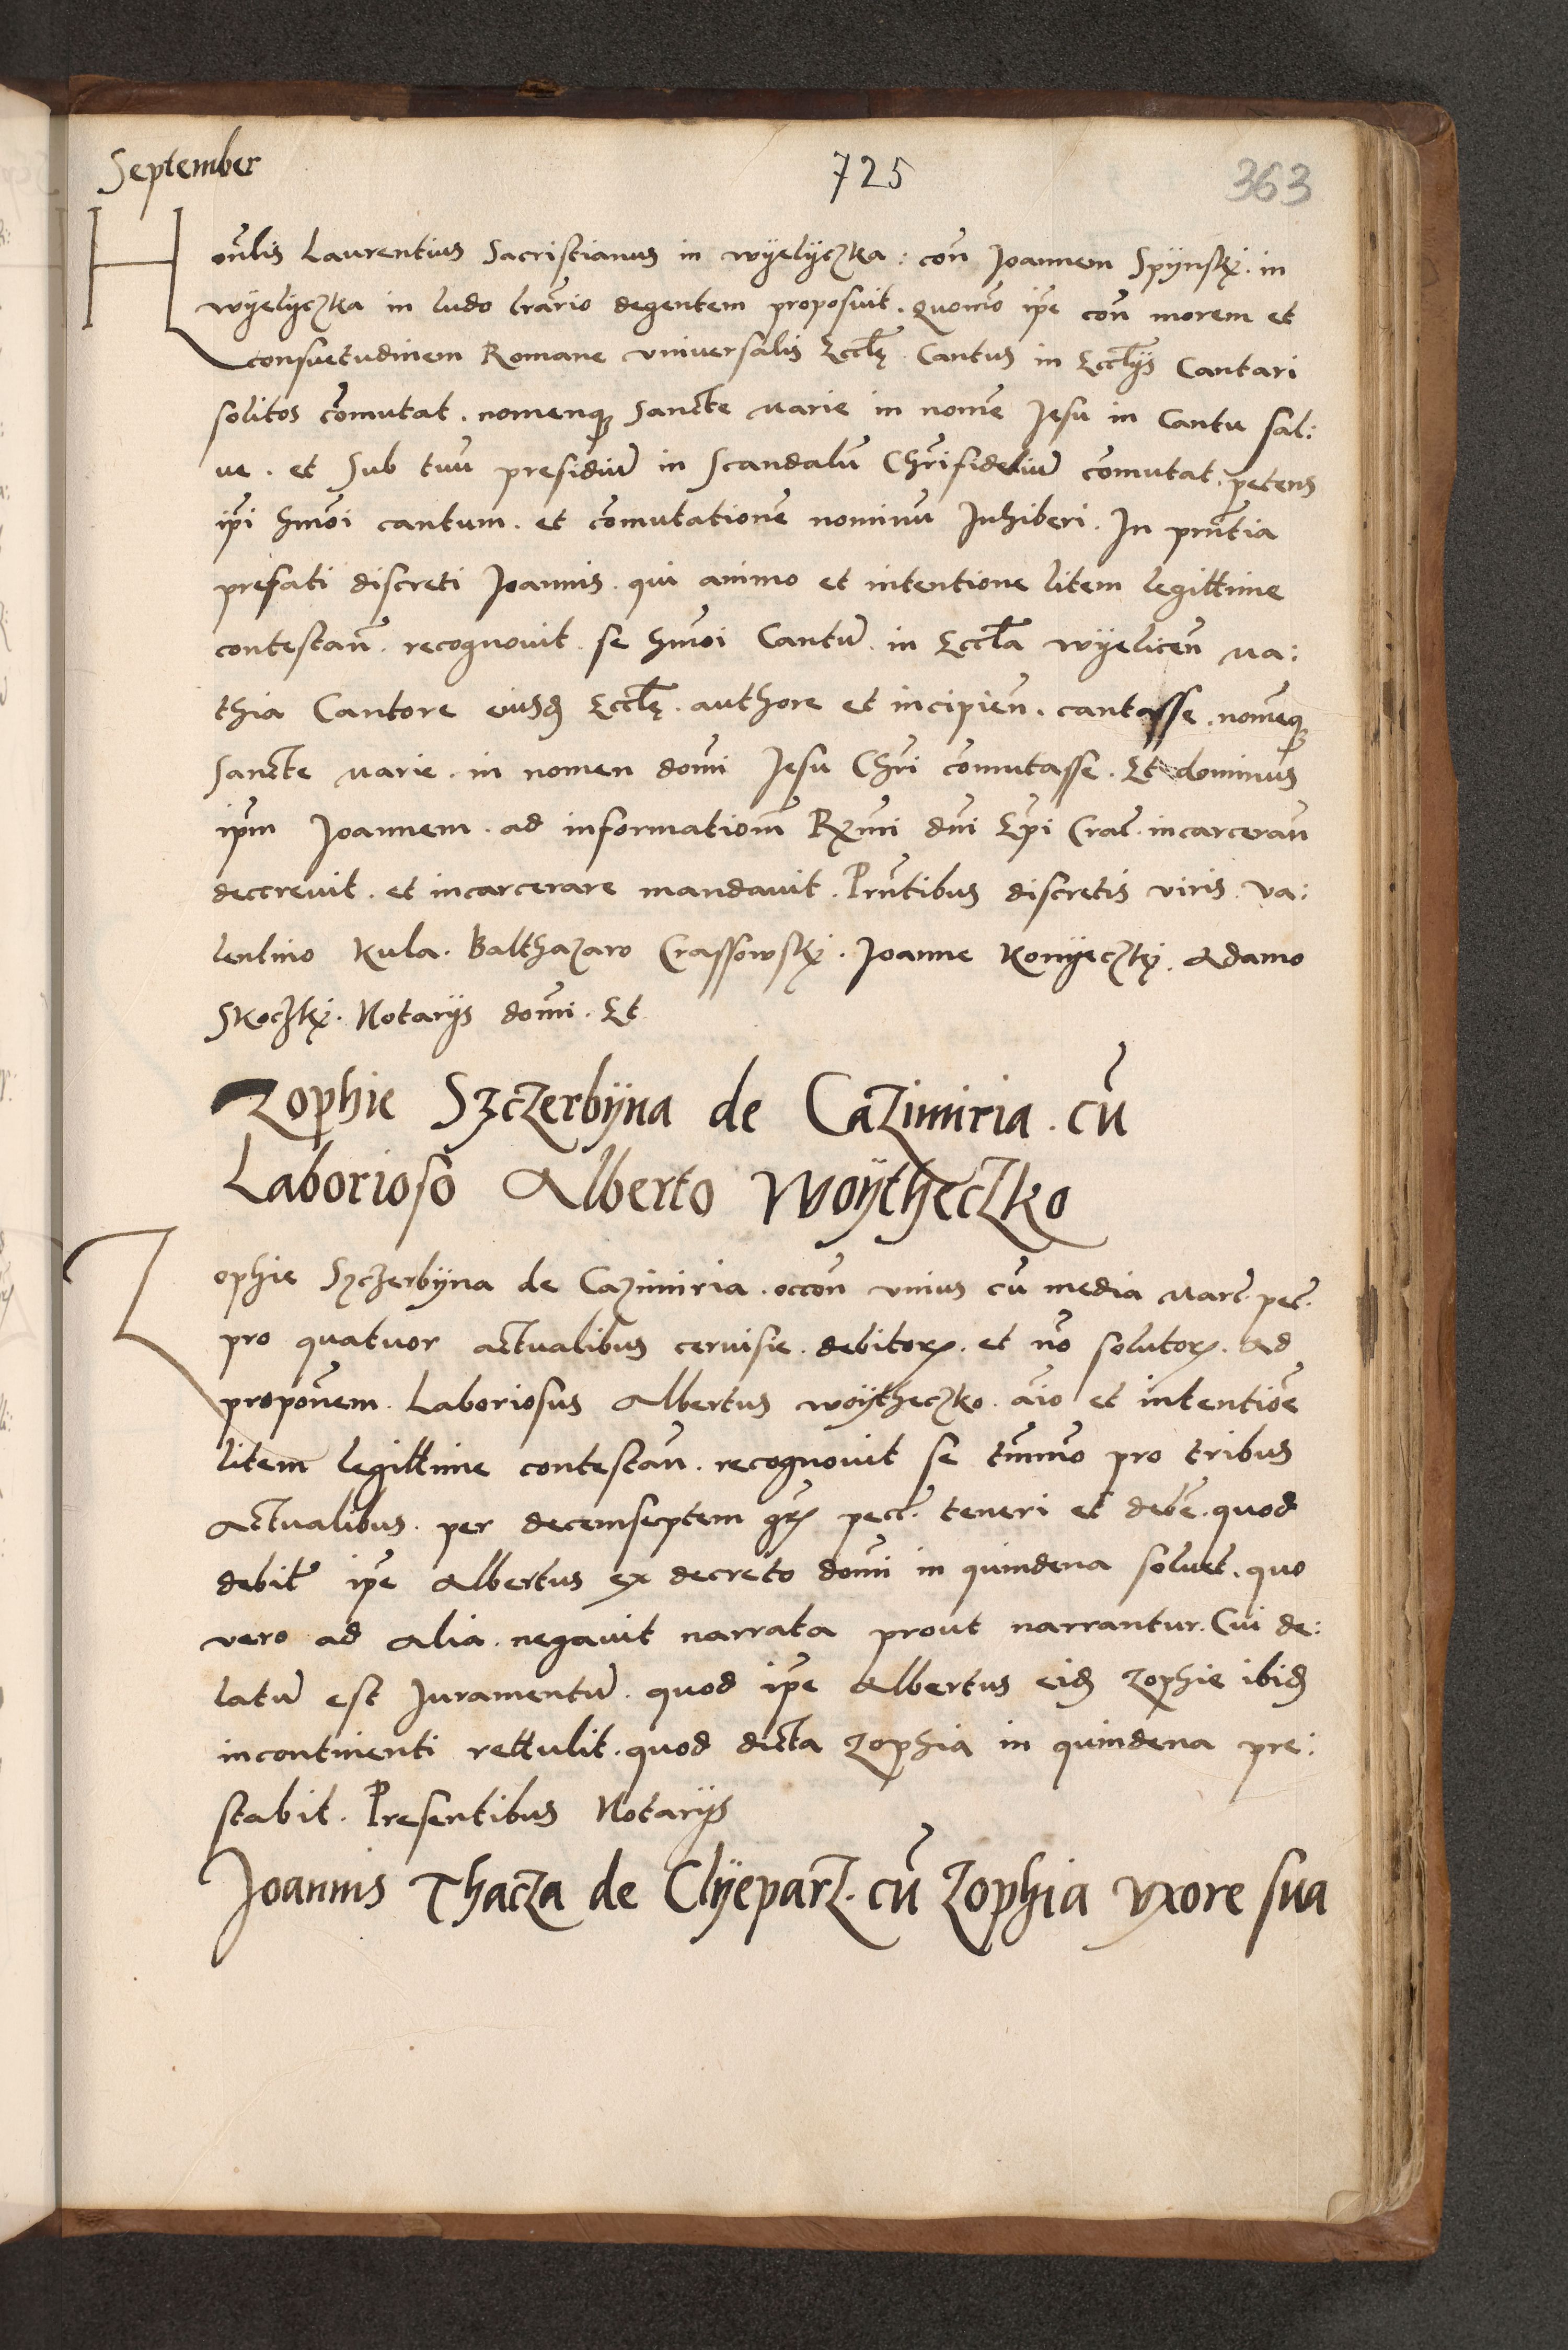 September
725
363
Honlis Laurentius Sacristianus in wÿelÿczka : con Joannem Spÿnskį. in
wÿelÿczka in ludo lrario degentem proposuit. Quomo ipe con morem et
consuetudinem Romane universalis Eccle. Cantus in Ecclÿs Cantari
solitos comutat. nomenq Sancte Marie in nome Jesu in Cantu sal:
ve. et Sub tuu presidiu in scandalu Chrifideliu comutat. petens
ipi hmoi cantum. et comutatione nominu Inhiberi. In prntia
prefati discreti Joannis. qui animo et intentione litem legittime
contestan. recognovit. se hmoi Cantu. in Eccla wÿelicen Ma:
thia Cantore eiusd Eccle. authore et incipien. cantasse. nomeq
Sancte Marie. in nomen domi Jesu Chri comutasse. Et dominus
ipm Joannem. ad informationem Rxmi dni Epi Crac. incarceran
decrevit. et incarcerare mandavit. Prntibus discretis viris. Va:
lentino Kula. Balthazaro Crassowskį. Joanne Konÿeczkį. Adamo
Skoczkį. Notarÿs domi. Et
Zophie Szczerbÿna de Cazimiria. cu
Laborioso Alberto Woÿtheczko
Zophie Szczerbÿna de Cazimiria. occon unius cu media Marc. pec.
pro quatuor actualibus cervisie. debitor. et no solutor. Ad
proponem. Laboriosus Albertus woÿtheczko. aio et intentioe
litem legittime contestan. recognovit se tmmo pro tribus
Actualibus. per decemseptem gr pect. teneri et debe. quod
debit ipe Albertus ex decreto domi in quindena solvet. quo
vero ad alia. negavit narrata prout narrantur. Cui de:
latu est Juramentu. quod ipe Albertus eid Zophie ibid
incontinenti rettulit. quod dicta Zophia in quindena pre:
stabit. Presentibus Notarÿs
Joannis Thacza de Clÿeparz. cu Zophia uxore sua